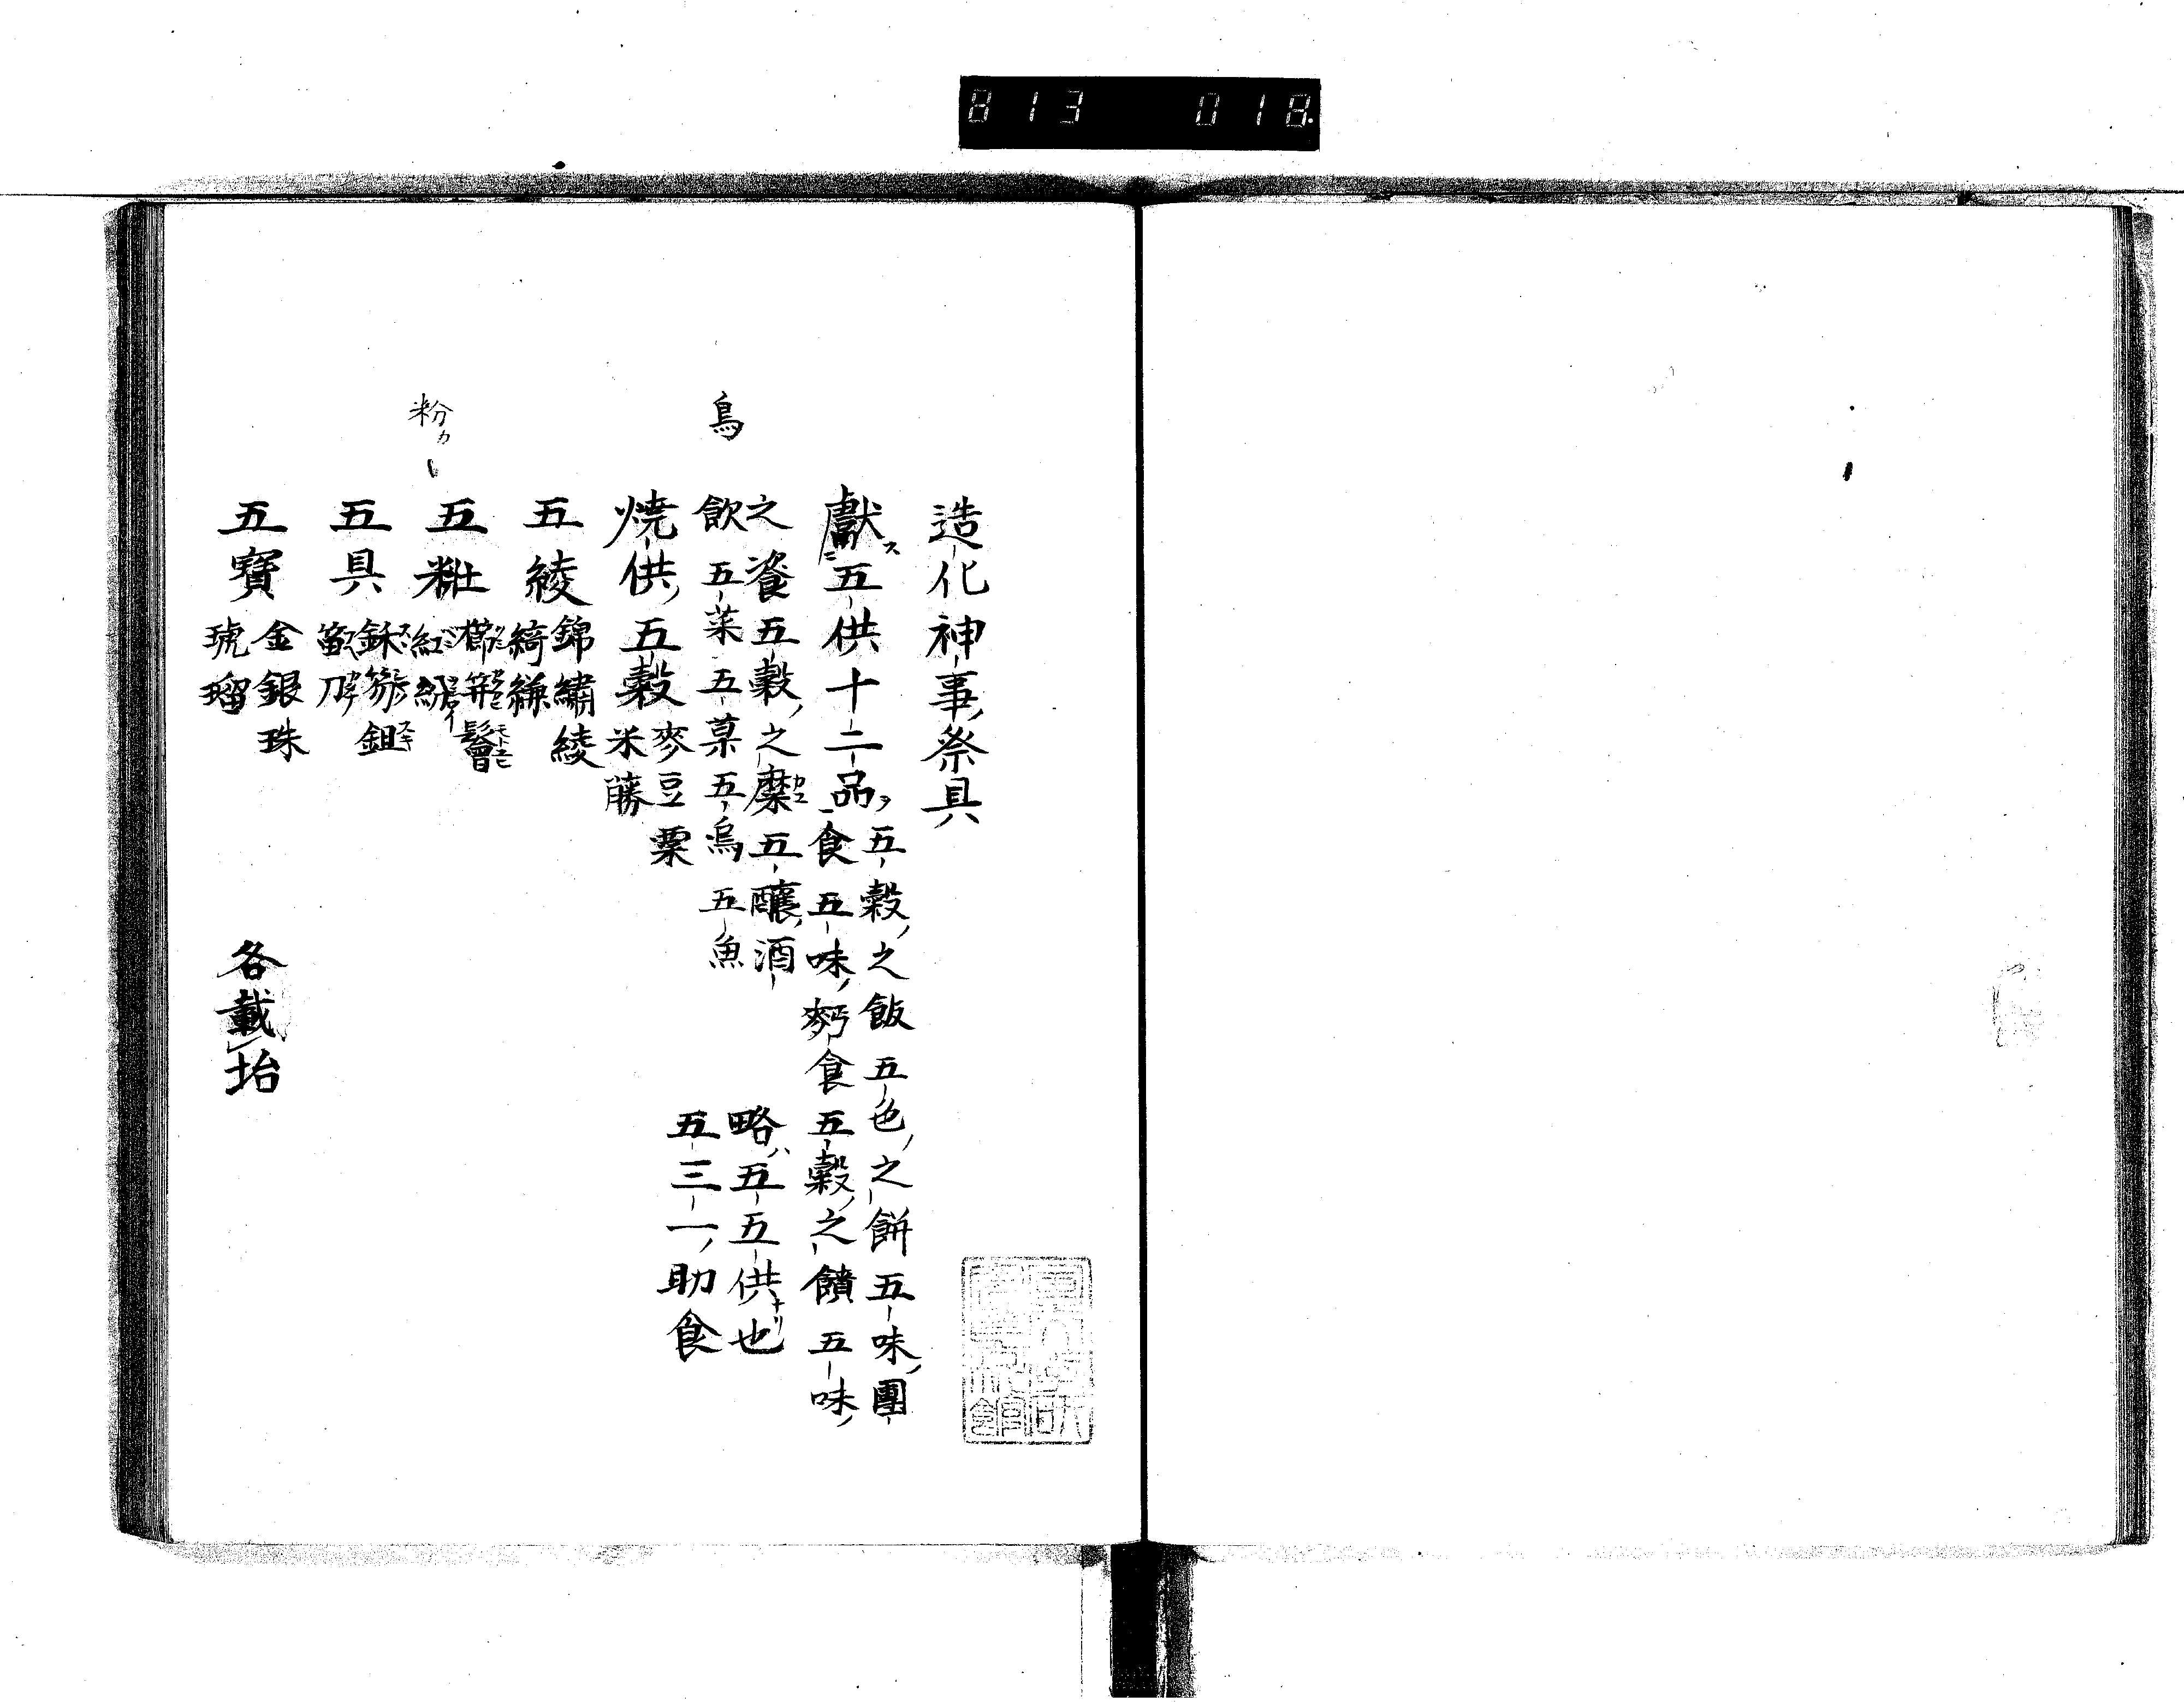 813 018
造化神事祭具
獻ス五供十二品ヲ
五穀之飯 五色之餅 五味團
食 五味麪食 五穀之饙 五味
之餈 五穀之糜 五釀酒
飲 五菜 五菓 五烏 五魚
鳥
略ハ五五供ナリ也
五三一助食
燒供五穀
麥豆粟
米勝
五綾
錦繡綾
綺縑
五粧
櫛笄鬠
紅紛
粉カ
五具
鉏
刀
五寶
金銀珠
琥瑠
各載坮